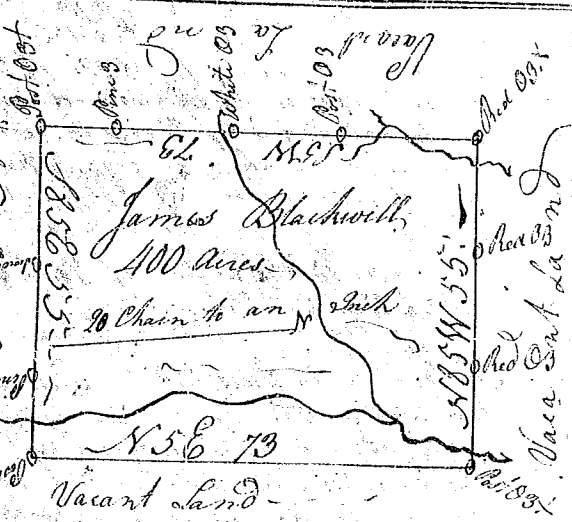 Vacant
La nd
Post O3X
Pine 3
White O3
Post O3
Red O3X
S5W 73
S85E 55
James Blackwill
400 acres
20 Chain to an Inch
N
N85W 55
Red O3
Red O3
Vacant Land
N5E 73
Post O3X
Vacant Land